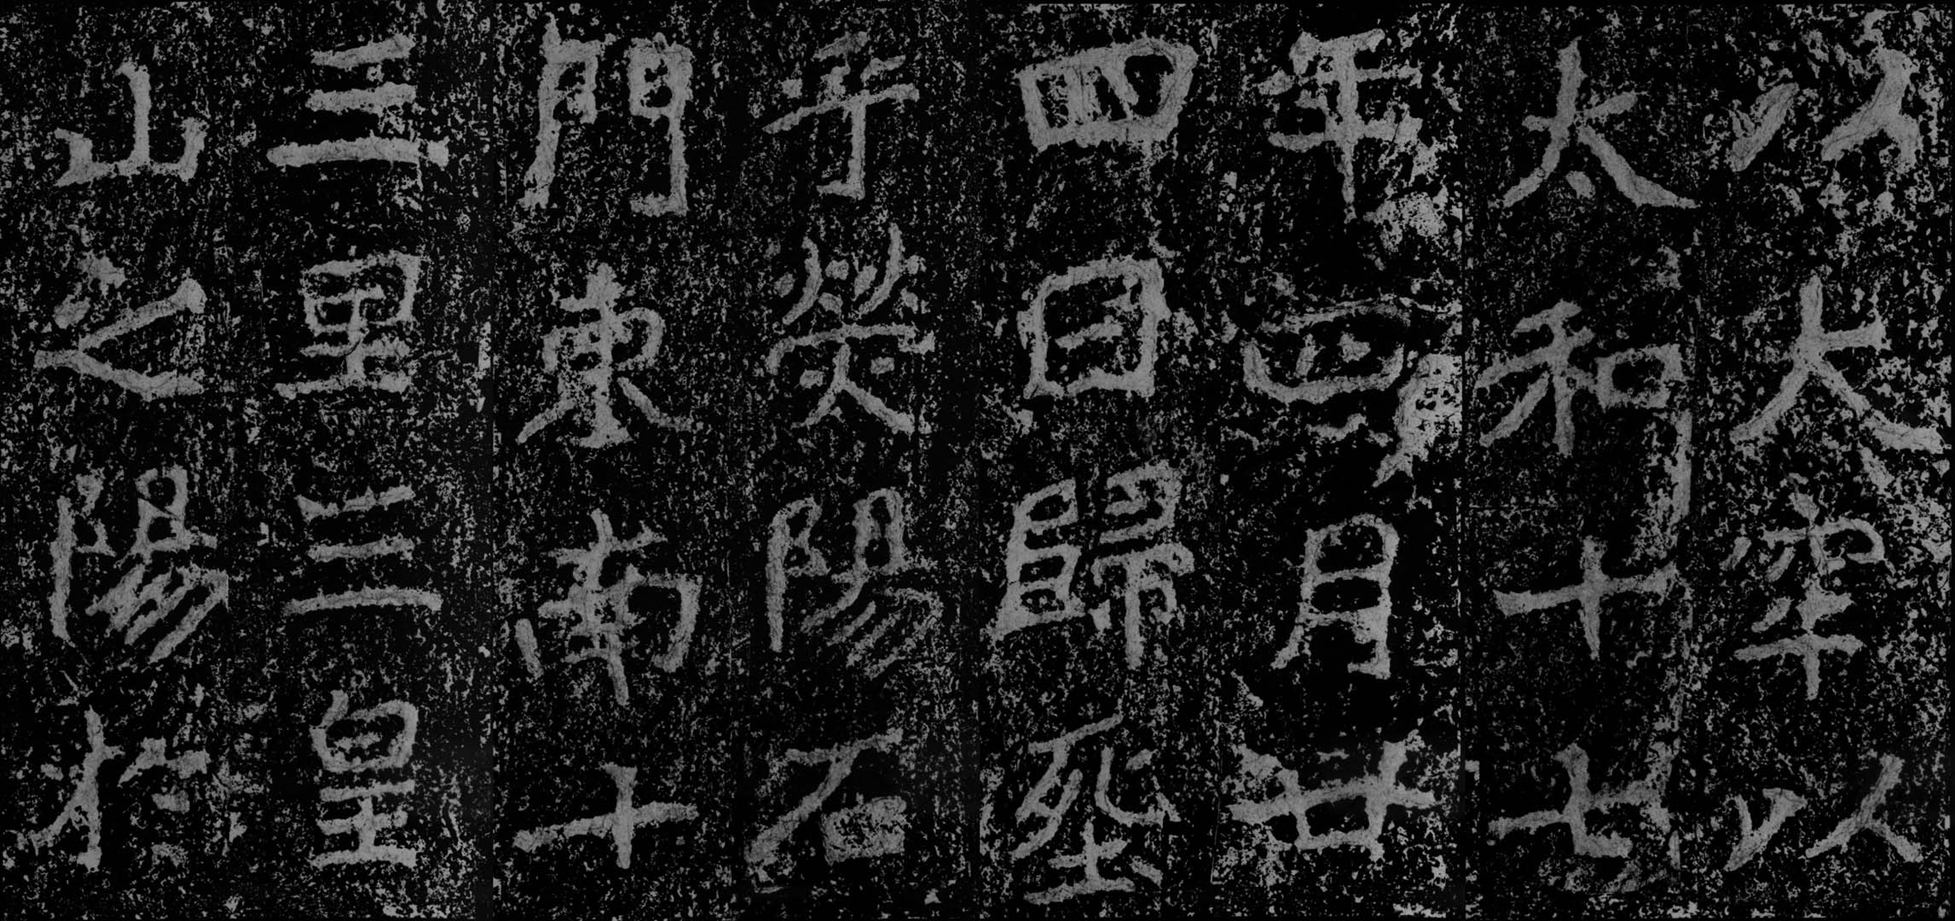 以大牢以
太和十七
年四月廿
四日歸葬
乎熒陽石
門東南十
三里三皇
山之陽於